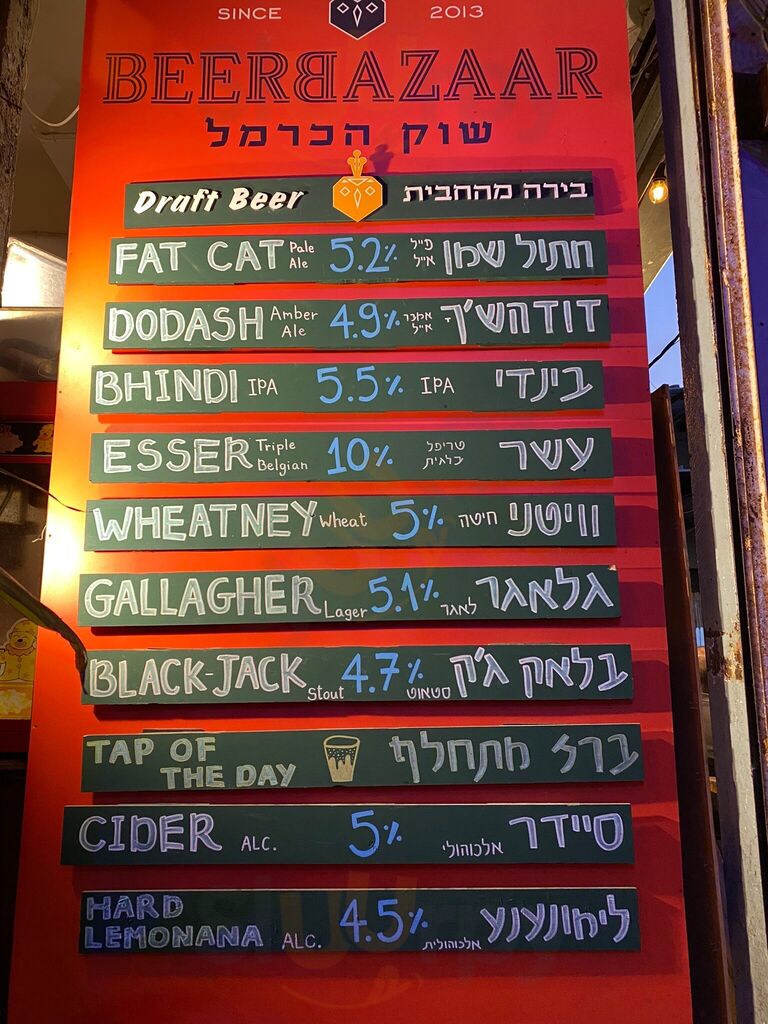 SINCE 2013
BEERBAZAAR
שוק הכרמל
Draft Beer בירה מהחבית
FAT CAT Pale Ale 5.2% פייל אייל חתול שמן
DODASH Amber Ale 4.9% אמבר אייל דודהש'ך
BHINDI IPA 5.5% IPA בינדי
ESSER Triple Belgian 10% טריפל בלגית עשר
WHEATNEY Wheat 5% חיטה וויטני
GALLAGHER Lager 5.1% לאגר גלאגר
BLACK-JACK Stout 4.7% סטאוט בלאק ג'ק
TAP OF THE DAY ברז מתחלף
CIDER ALC. 5% אלכוהולי סיידר
HARD LEMONANA ALC. 4.5% אלכוהולית לימונענע